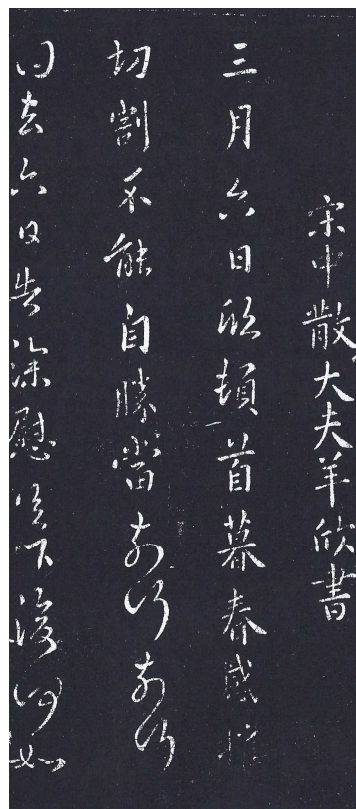 宋中散大夫羊欣書
三月六日欣頓首暮春感摧
切割不能自勝當奈何奈何
得去六日告深慰足下復何如